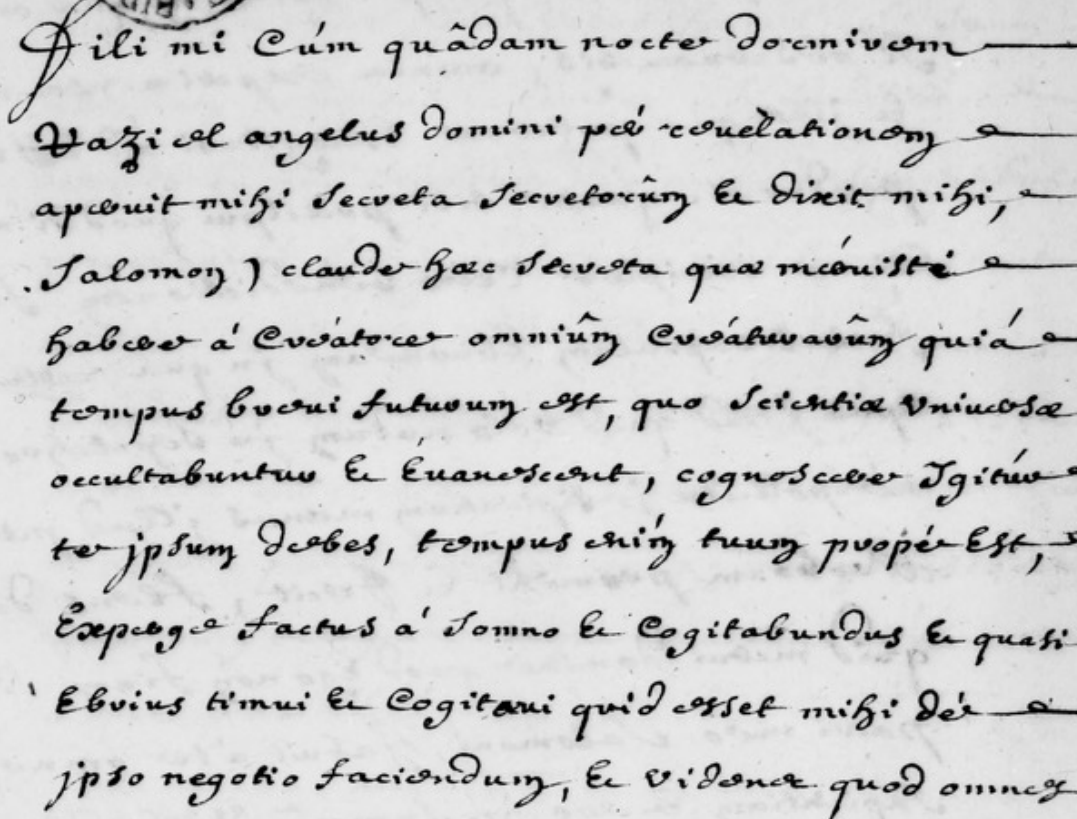 Fili mi Cúm quâdam nocte dormirem
Raziel angelus domini per revelationem
aperuit mihi Secreta Secretorûm & dixit mihi,
Salomon) claude hæc Secreta quæ méruisti
habere á Créátore omniûm Créáturarûm quiá
tempus brevi futurum est, quo Scientiæ Vniversæ
occultabuntur & Évanescent, cognoscere Igitúr
te jpsum debes, tempusením tuum propé Est,
Experge factus á Somno & Cogitabundus & quasi
Ebrius timui & Cogitavi quid esset mihi dé
jpso negotio faciendum, & videns quod omnes